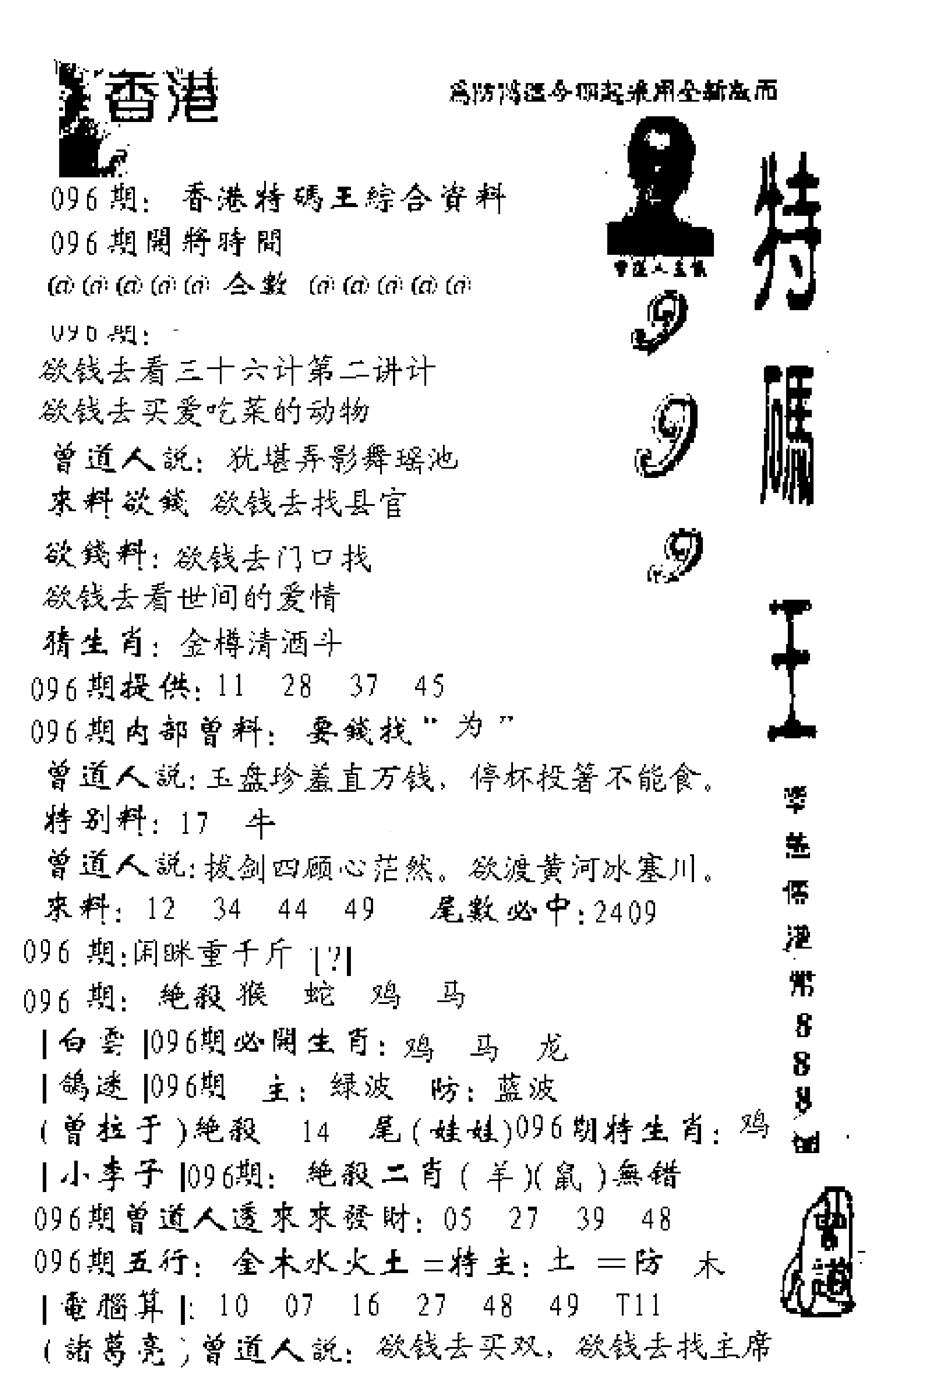 香港
096期：香港特碼王綜合資料
096期開將時間
@@@@@ 合數 @@@@@
096期：
欲钱去看三十六计第二讲计
欲钱去买爱吃菜的动物
曾道人説：犹堪弄影舞瑶池
來料欲錢 欲钱去找县官
欲錢料：欲钱去门口找
欲钱去看世间的爱情
猜生肖：金樽清酒斗
096期提供：11 28 37 45
096期内部曾料：要錢找“为”
曾道人説：玉盘珍羞直万钱，停杯投箸不能食。
特别料：17 牛
曾道人説：拔剑四顾心茫然。欲渡黄河冰塞川。
來料：12 34 44 49 尾數必中：2409
096 期：闲眯重千斤 [?]
096 期：绝殺猴 蛇 鸡 马
|白雲|096期必開生肖：鸡 马 龙
|鴿迷|096期 主：绿波 防：蓝波
(曾拉于)绝殺 14 尾(娃娃)096期特生肖：鸡
|小李子|096期：绝殺二肖(羊)(鼠)無错
096期曾道人透來來發財：05 27 39 48
096期五行：金木水火土=特主：土 =防 木
|電腦算|：10 07 16 27 48 49 T11
(諸葛亮)曾道人説：欲钱去买双，欲钱去找主席
曾道人主
9
9
9
特碼王
港幣888